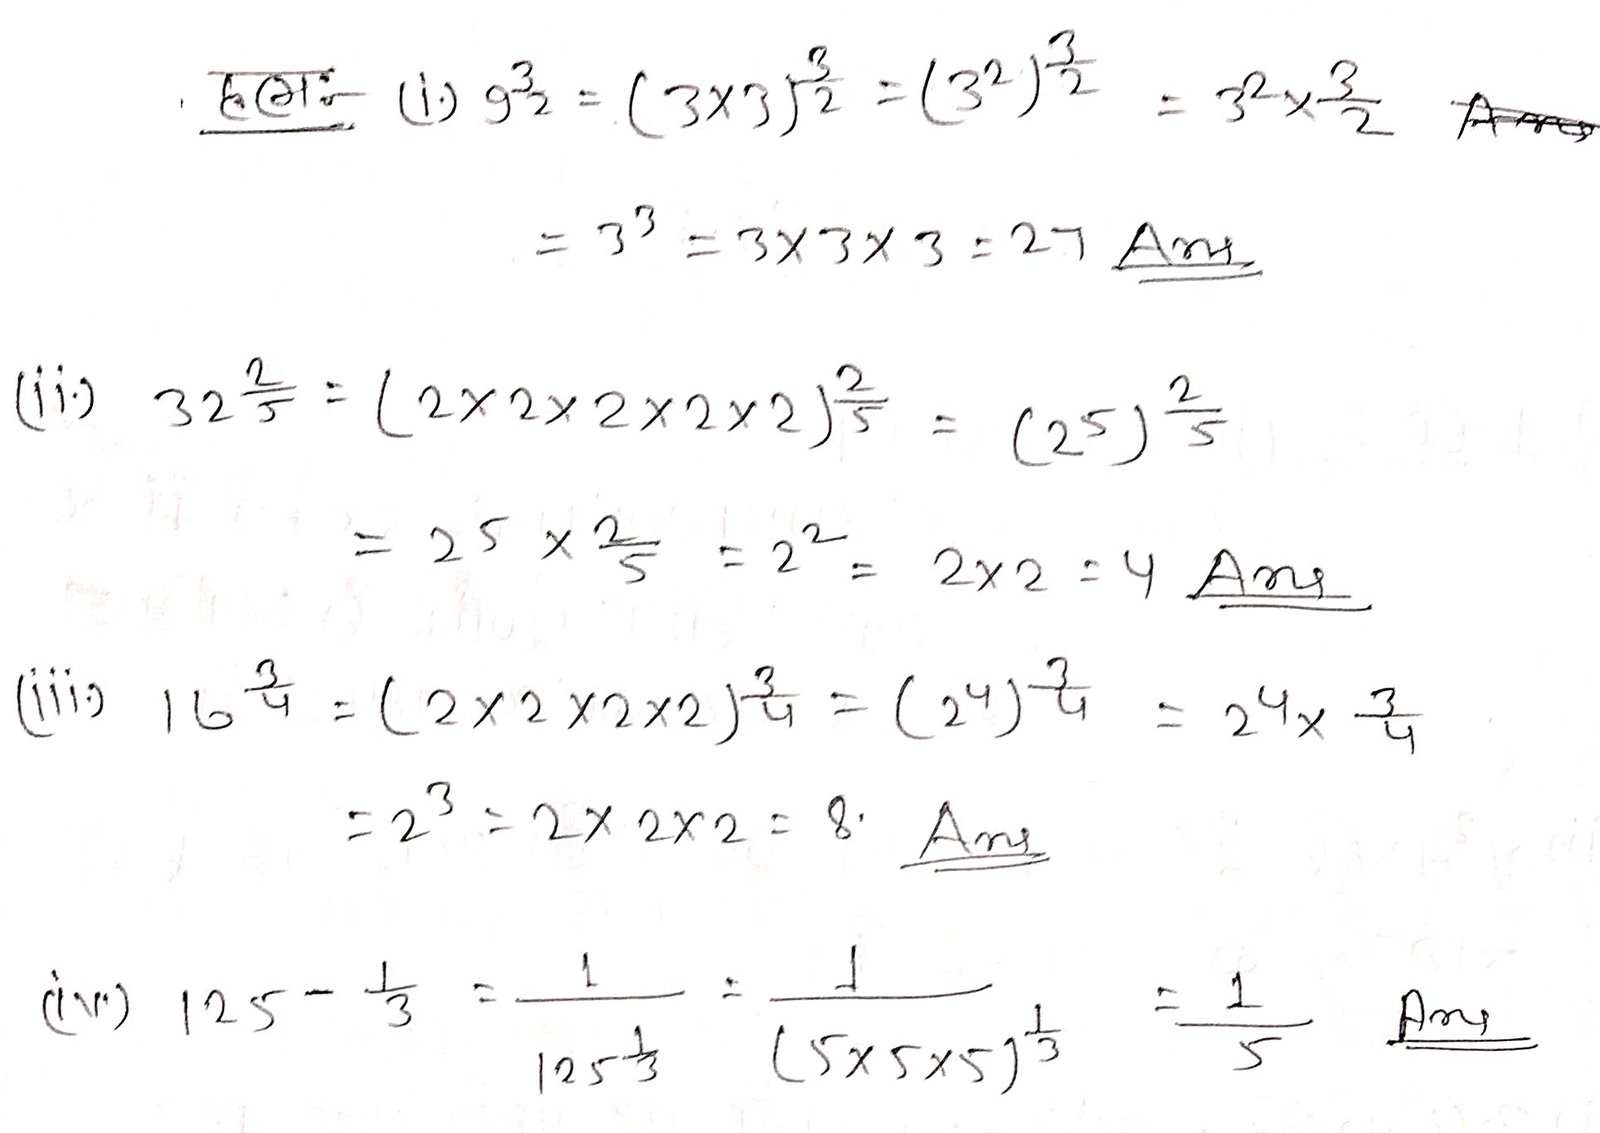 हल:- (i.) 9^{3/2} = (3×3)^{3/2} = (3²)^{3/2} = 3^{2×3/2}
= 3³ = 3×3×3 = 27 Ans
(ii.) 32^{2/5} = (2×2×2×2×2)^{2/5} = (2⁵)^{2/5}
= 2^{5×2/5} = 2² = 2×2 = 4 Ans
(iii.) 16^{3/4} = (2×2×2×2)^{3/4} = (2⁴)^{3/4} = 2^{4×3/4}
= 2³ = 2×2×2 = 8. Ans
(iv.) 125^{-1/3} = 1/125^{1/3} = 1/(5×5×5)^{1/3} = 1/5 Ans